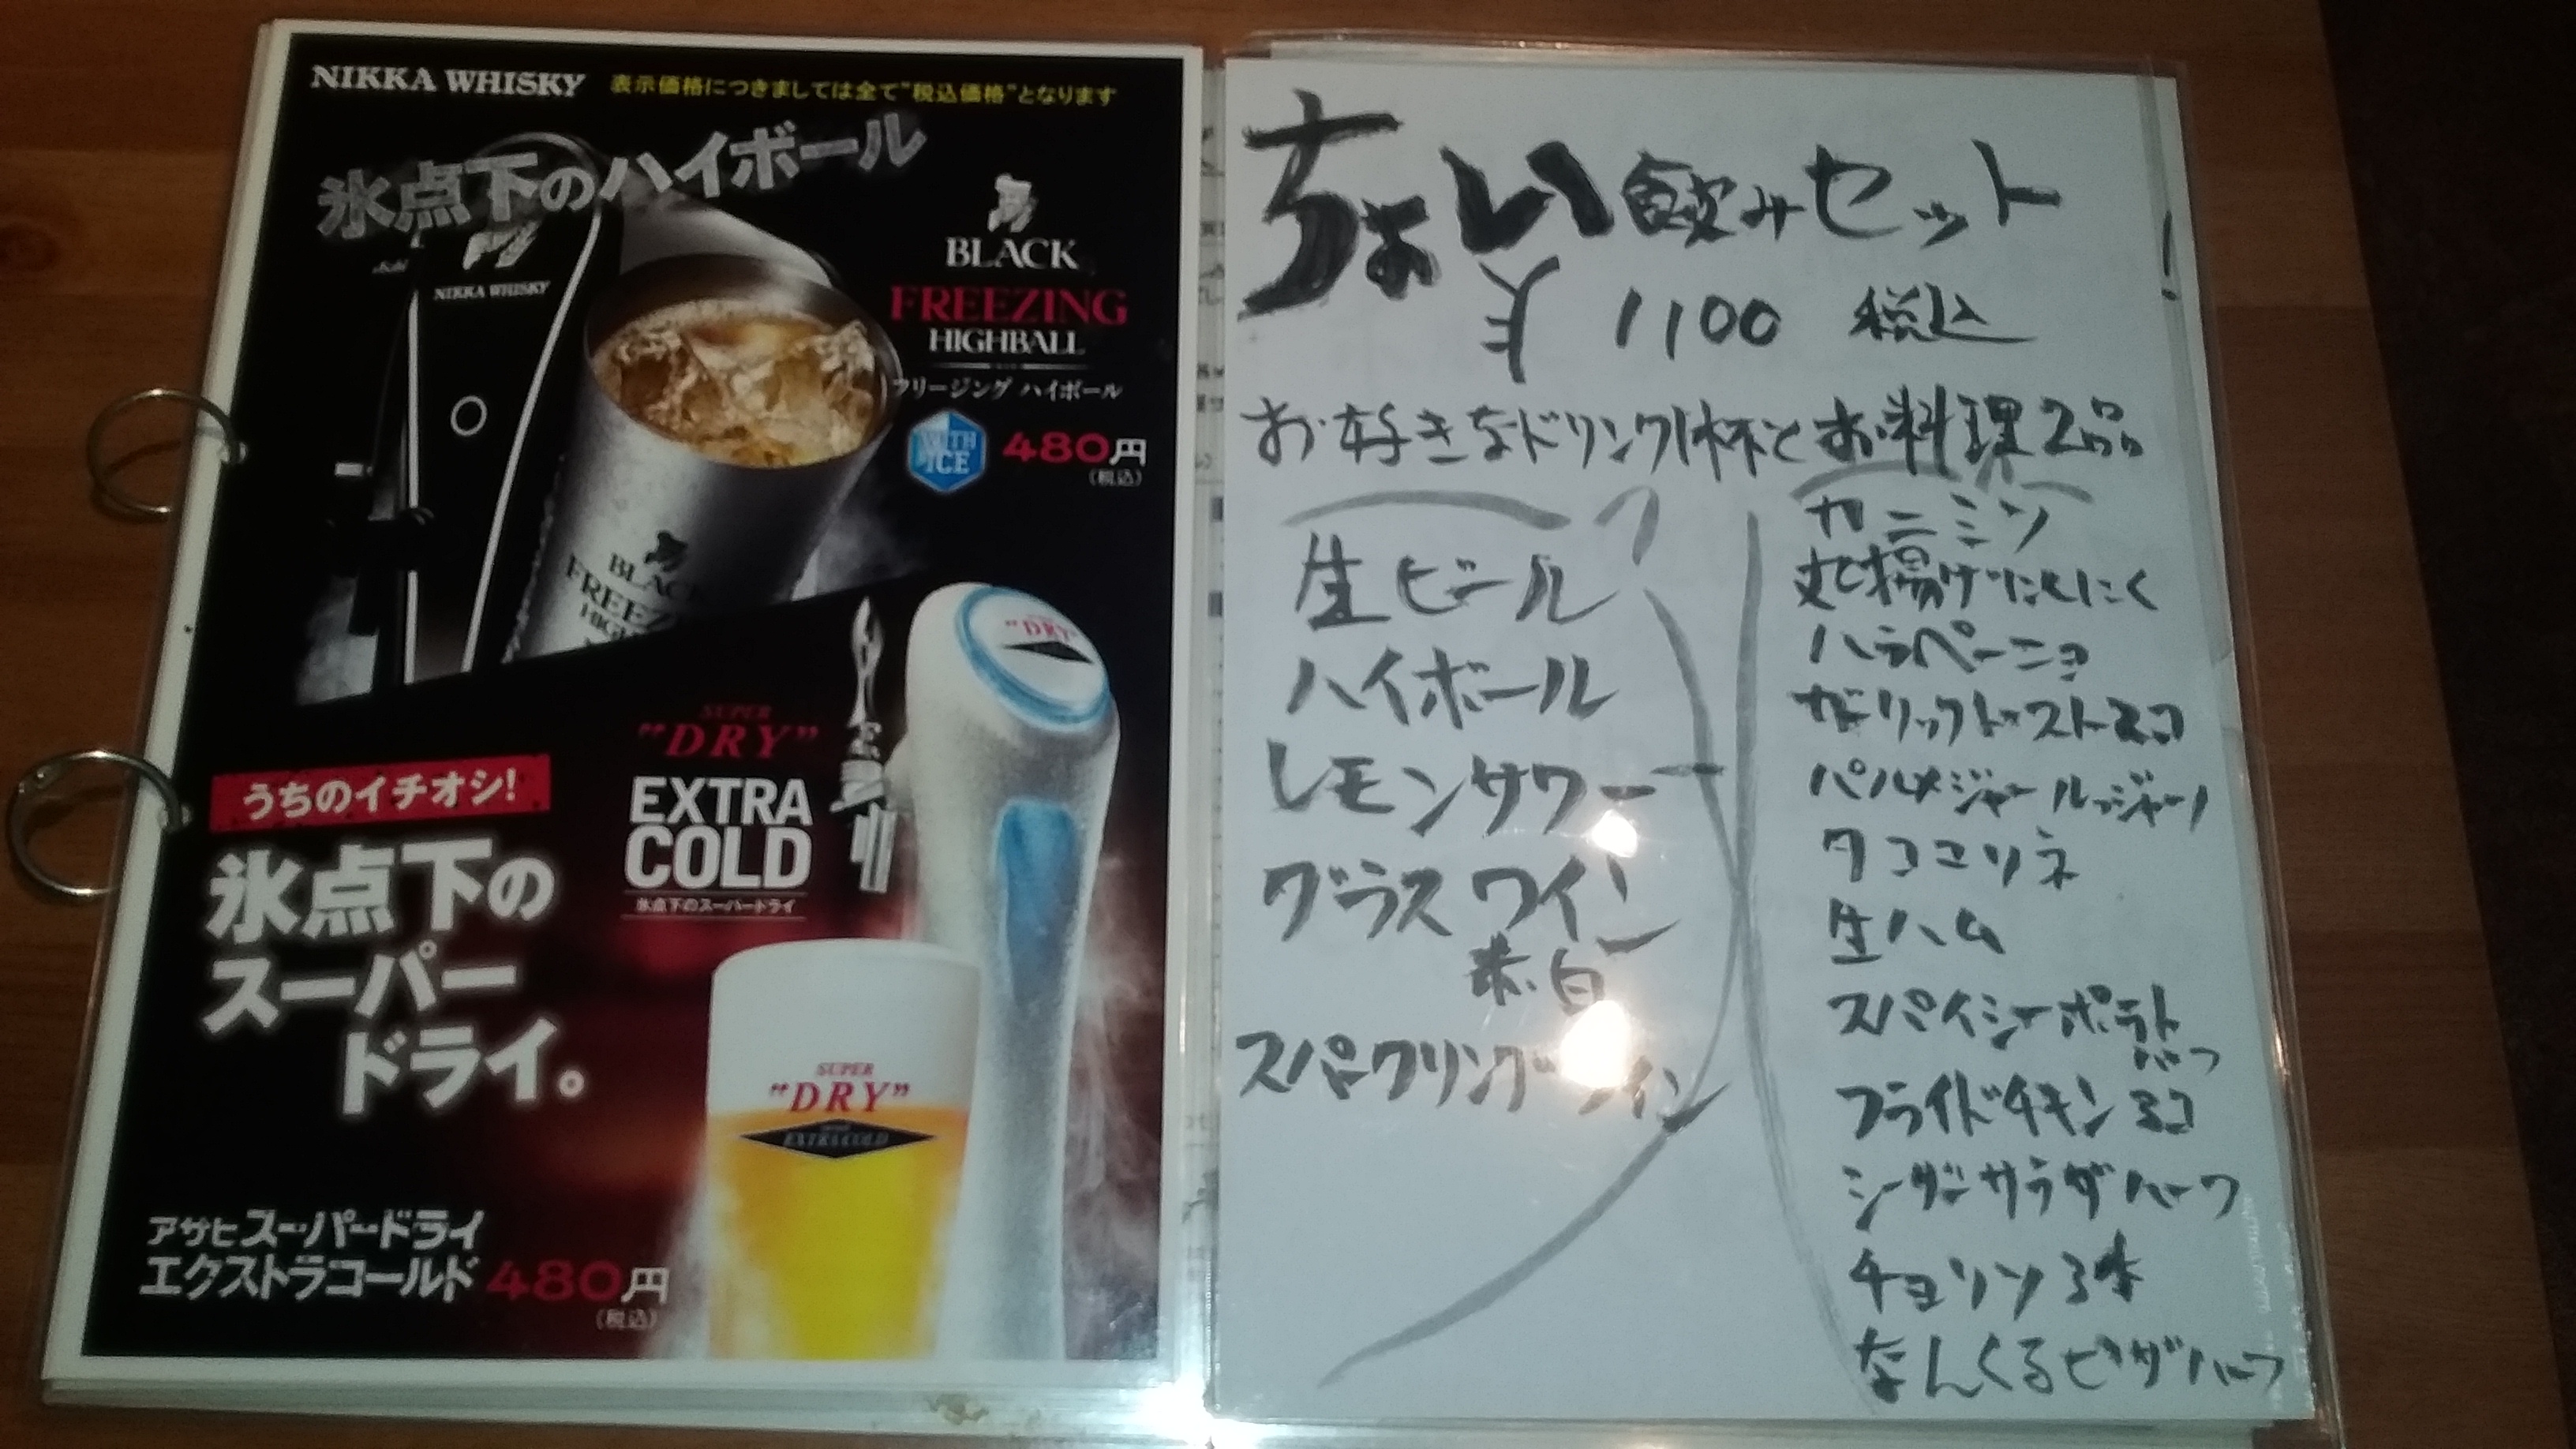 NIKKA WHISKY 表示価格につきましては全て"税込価格"となります
氷点下のハイボール
Asahi
NIKKA WHISKY
BLACK
FREEZING
HIGHBALL
フリージング ハイボール
WITH ICE
480円
(税込)
BLACK
FREEZ
HIGH
"DRY"
SUPER
"DRY"
EXTRA
COLD
氷点下のスーパードライ
うちのイチオシ!
氷点下の
スーパー
ドライ。
SUPER
"DRY"
EXTRA COLD
アサヒスーパードライ
エクストラコールド 480円
(税込)
ちょい飲みセット
¥1100 税込
お好きなドリンク1杯とお料理2品
生ビール
ハイボール
レモンサワー
グラスワイン
赤・白
スパークリングワイン
カニミソ
丸揚げにんにく
ハラペーニョ
ガーリックトースト2コ
パルメジャーノレッジャーノ
タココリネ
生ハム
スパイシーポテト
ハーフ
フライドチキン3コ
シーザーサラダハーフ
チョリソ3本
なんくるピザハーフ